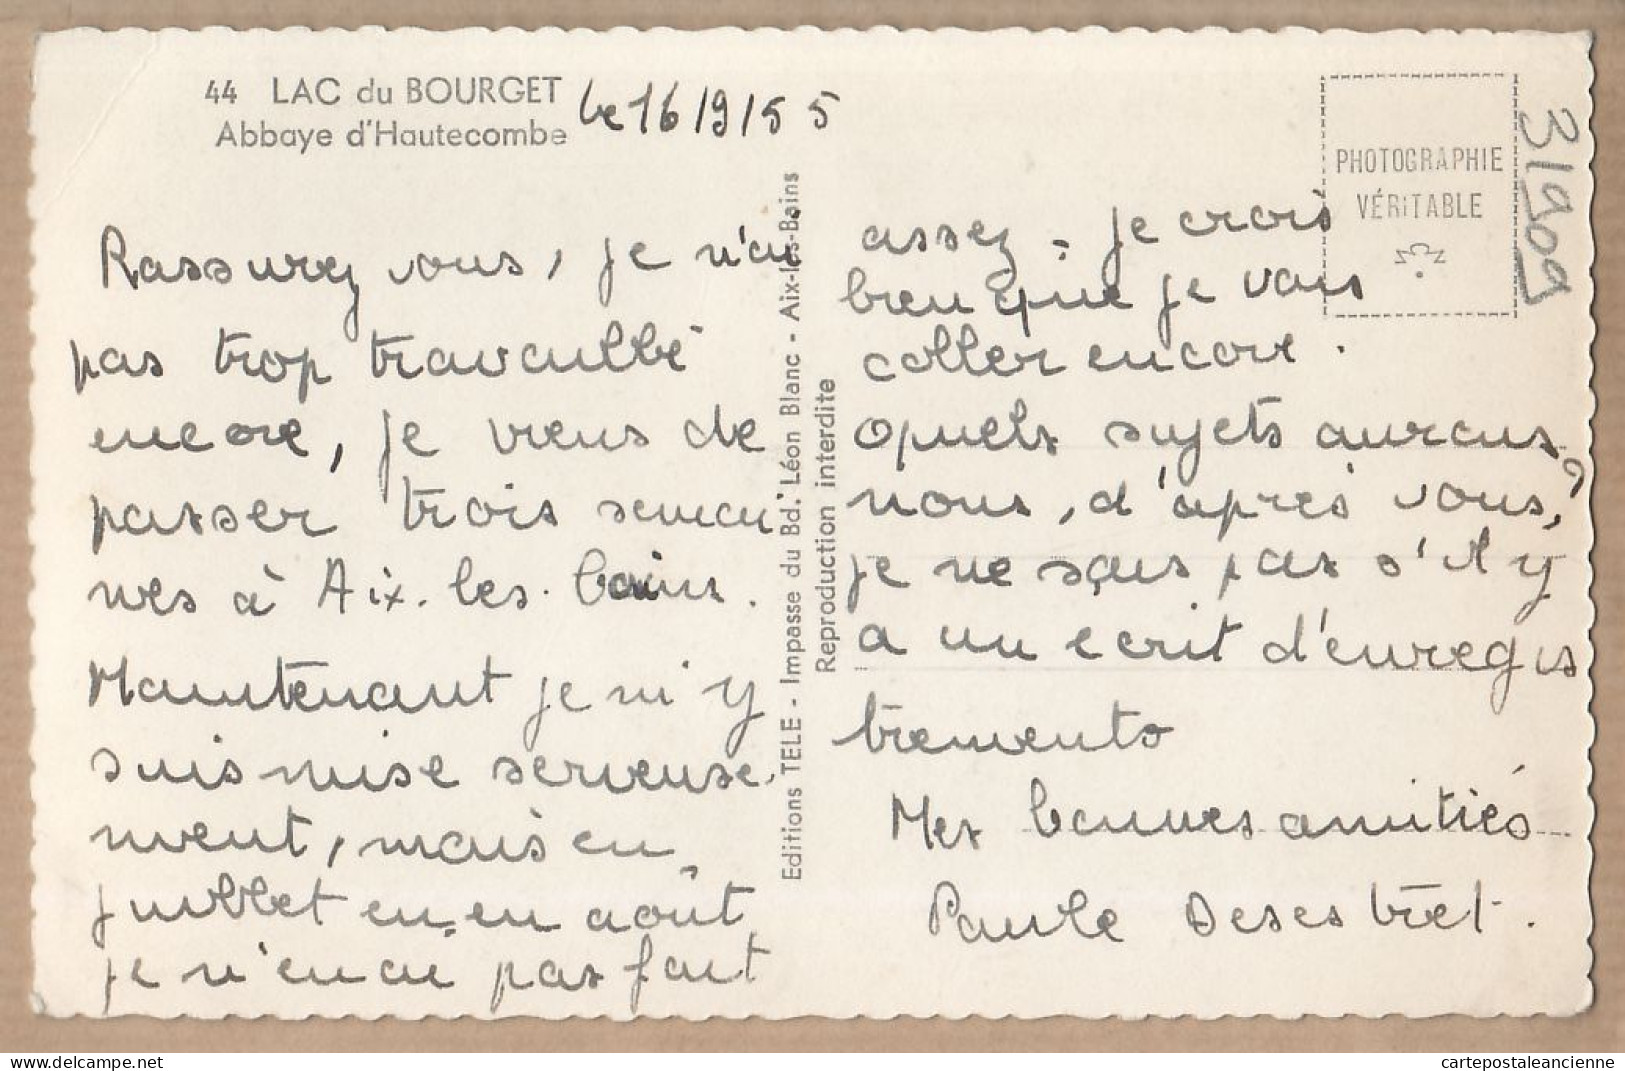 44 LAC du BOURGET
Abbaye d'Hautecombe
le 16/9/55
Rassurez vous, je n'ai
pas trop travaillé
encore, je viens de
passer trois semai
nes à Aix. les. bains.
Maintenant je m'y
suis mise serieuse.
ment, mais en
juillet en en août
je n'en ai pas fait
Editions TELE - Impasse du Bd. Léon Blanc - Aix-les-Bains
Reproduction interdite
PHOTOGRAPHIE
VÉRITABLE
31909
assez - je crois
bien que je vais
coller encore.
Quels sujets aurons
nous, d'après vous,?
je ne sais pas s'il y
a un ecrit d'enregis
trements
Mes bonnes amitiés
Paule Desestret.
www.delcampe.net
cartepostaleancienne